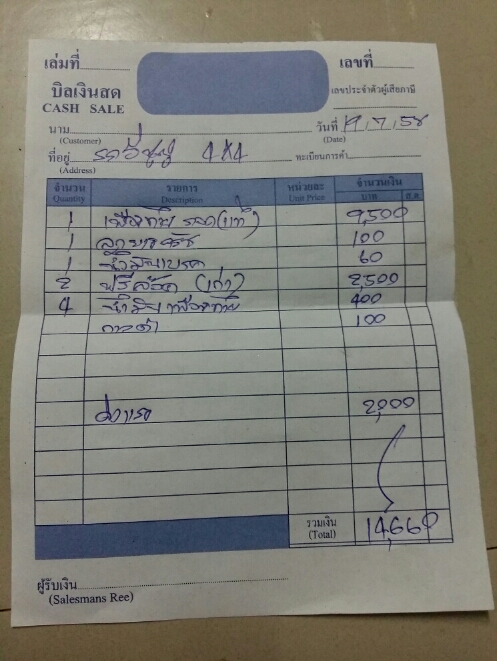 เล่มที่ เลขที่
บิลเงินสด เลขประจำตัวผู้เสียภาษี
CASH SALE
นาม วันที่ 19,7,58
(Customer) (Date)
ที่อยู่ รถอีซูซุ 4x4 ทะเบียนการค้า
(Address)
จำนวน รายการ หน่วยละ จำนวนเงิน
Quantity Description Unit Price บาท ส.ต.
1 เฟืองท้าย 9,500
1 100
1 น้ำมันเบรค 60
2 ฟรีล๊อค (เก่า) 2,500
4 น้ำมันเฟืองท้าย 400
กาวดำ 100
ค่าแรง 2,000
รวมเงิน 14,660
(Total)
ผู้รับเงิน
(Salesmans Ree)